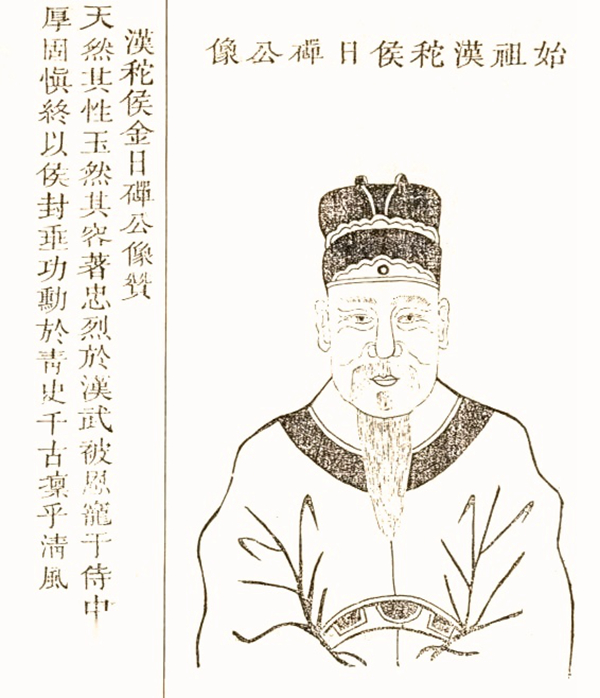 始祖漢秺侯日磾公像
漢秺侯金日磾公像贊
天然其性玉然其容著忠烈於漢武被恩寵于侍中
厚固慎終以侯封垂功勳於青史千古凜乎清風